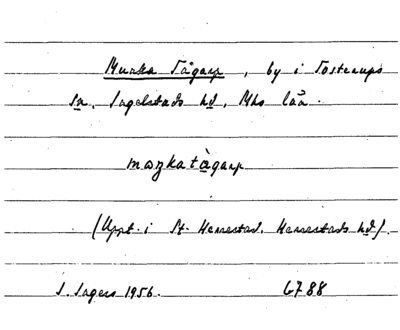 Munka Tågarp, by i Tosterups
sn. Ingelstads hd, Mhs län.
mɷŋkatàgarp
(Uppt. i St. Herrestad. Herrestads hd).
I. Ingers 1956. 6788